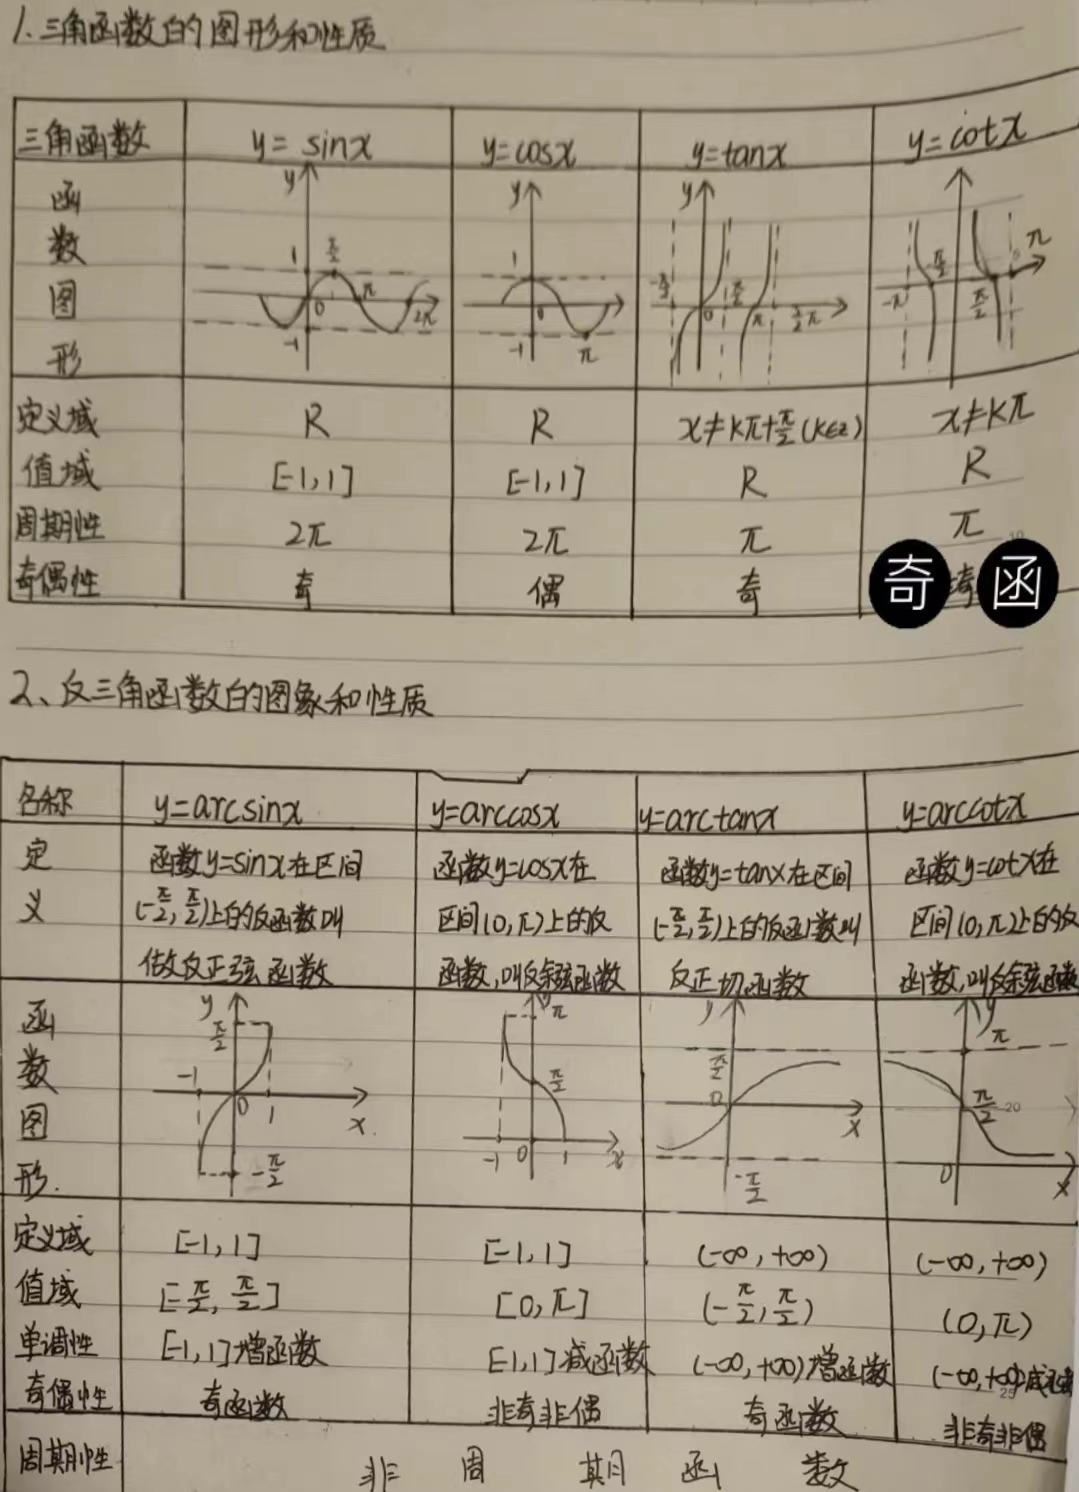 1.三角函数的图形和性质
三角函数 y=sinx y=cosx y=tanx y=cotx
函数图形
y 1 π/2 0 π 2π -1
y 1 0 -1 π
y -π/2 0 π/2 π 3/2π
-π -π/2 π/2 π
定义域 R R x≠kπ+π/2(k∈z) x≠kπ
值域 [-1,1] [-1,1] R R
周期性 2π 2π π π
奇偶性 奇 偶 奇 奇
奇 函
2、反三角函数的图象和性质
名称 y=arcsinx y=arccosx y=arctanx y=arccotx
定义
函数y=sinx在区间
(-π/2,π/2)上的反函数叫
做反正弦函数
函数y=cosx在
区间(0,π)上的反
函数,叫反余弦函数
函数y=tanx在区间
(-π/2,π/2)上的反函数叫
反正切函数
函数y=cotx在
区间(0,π)上的反
函数,叫反余弦函数
函数图形.
y π/2 -1 0 1 x -π/2
y π π/2 -1 0 1 x
y π/2 0 x -π/2
y π π/2 0 x
定义域 [-1,1] [-1,1] (-∞,+∞) (-∞,+∞)
值域 [-π/2,π/2] [0,π] (-π/2,π/2) (0,π)
单调性 [-1,1]增函数 [-1,1]减函数 (-∞,+∞)增函数 (-∞,+∞)减函数
奇偶性 奇函数 非奇非偶 奇函数 非奇非偶
周期性 非周期函数
10
20
25